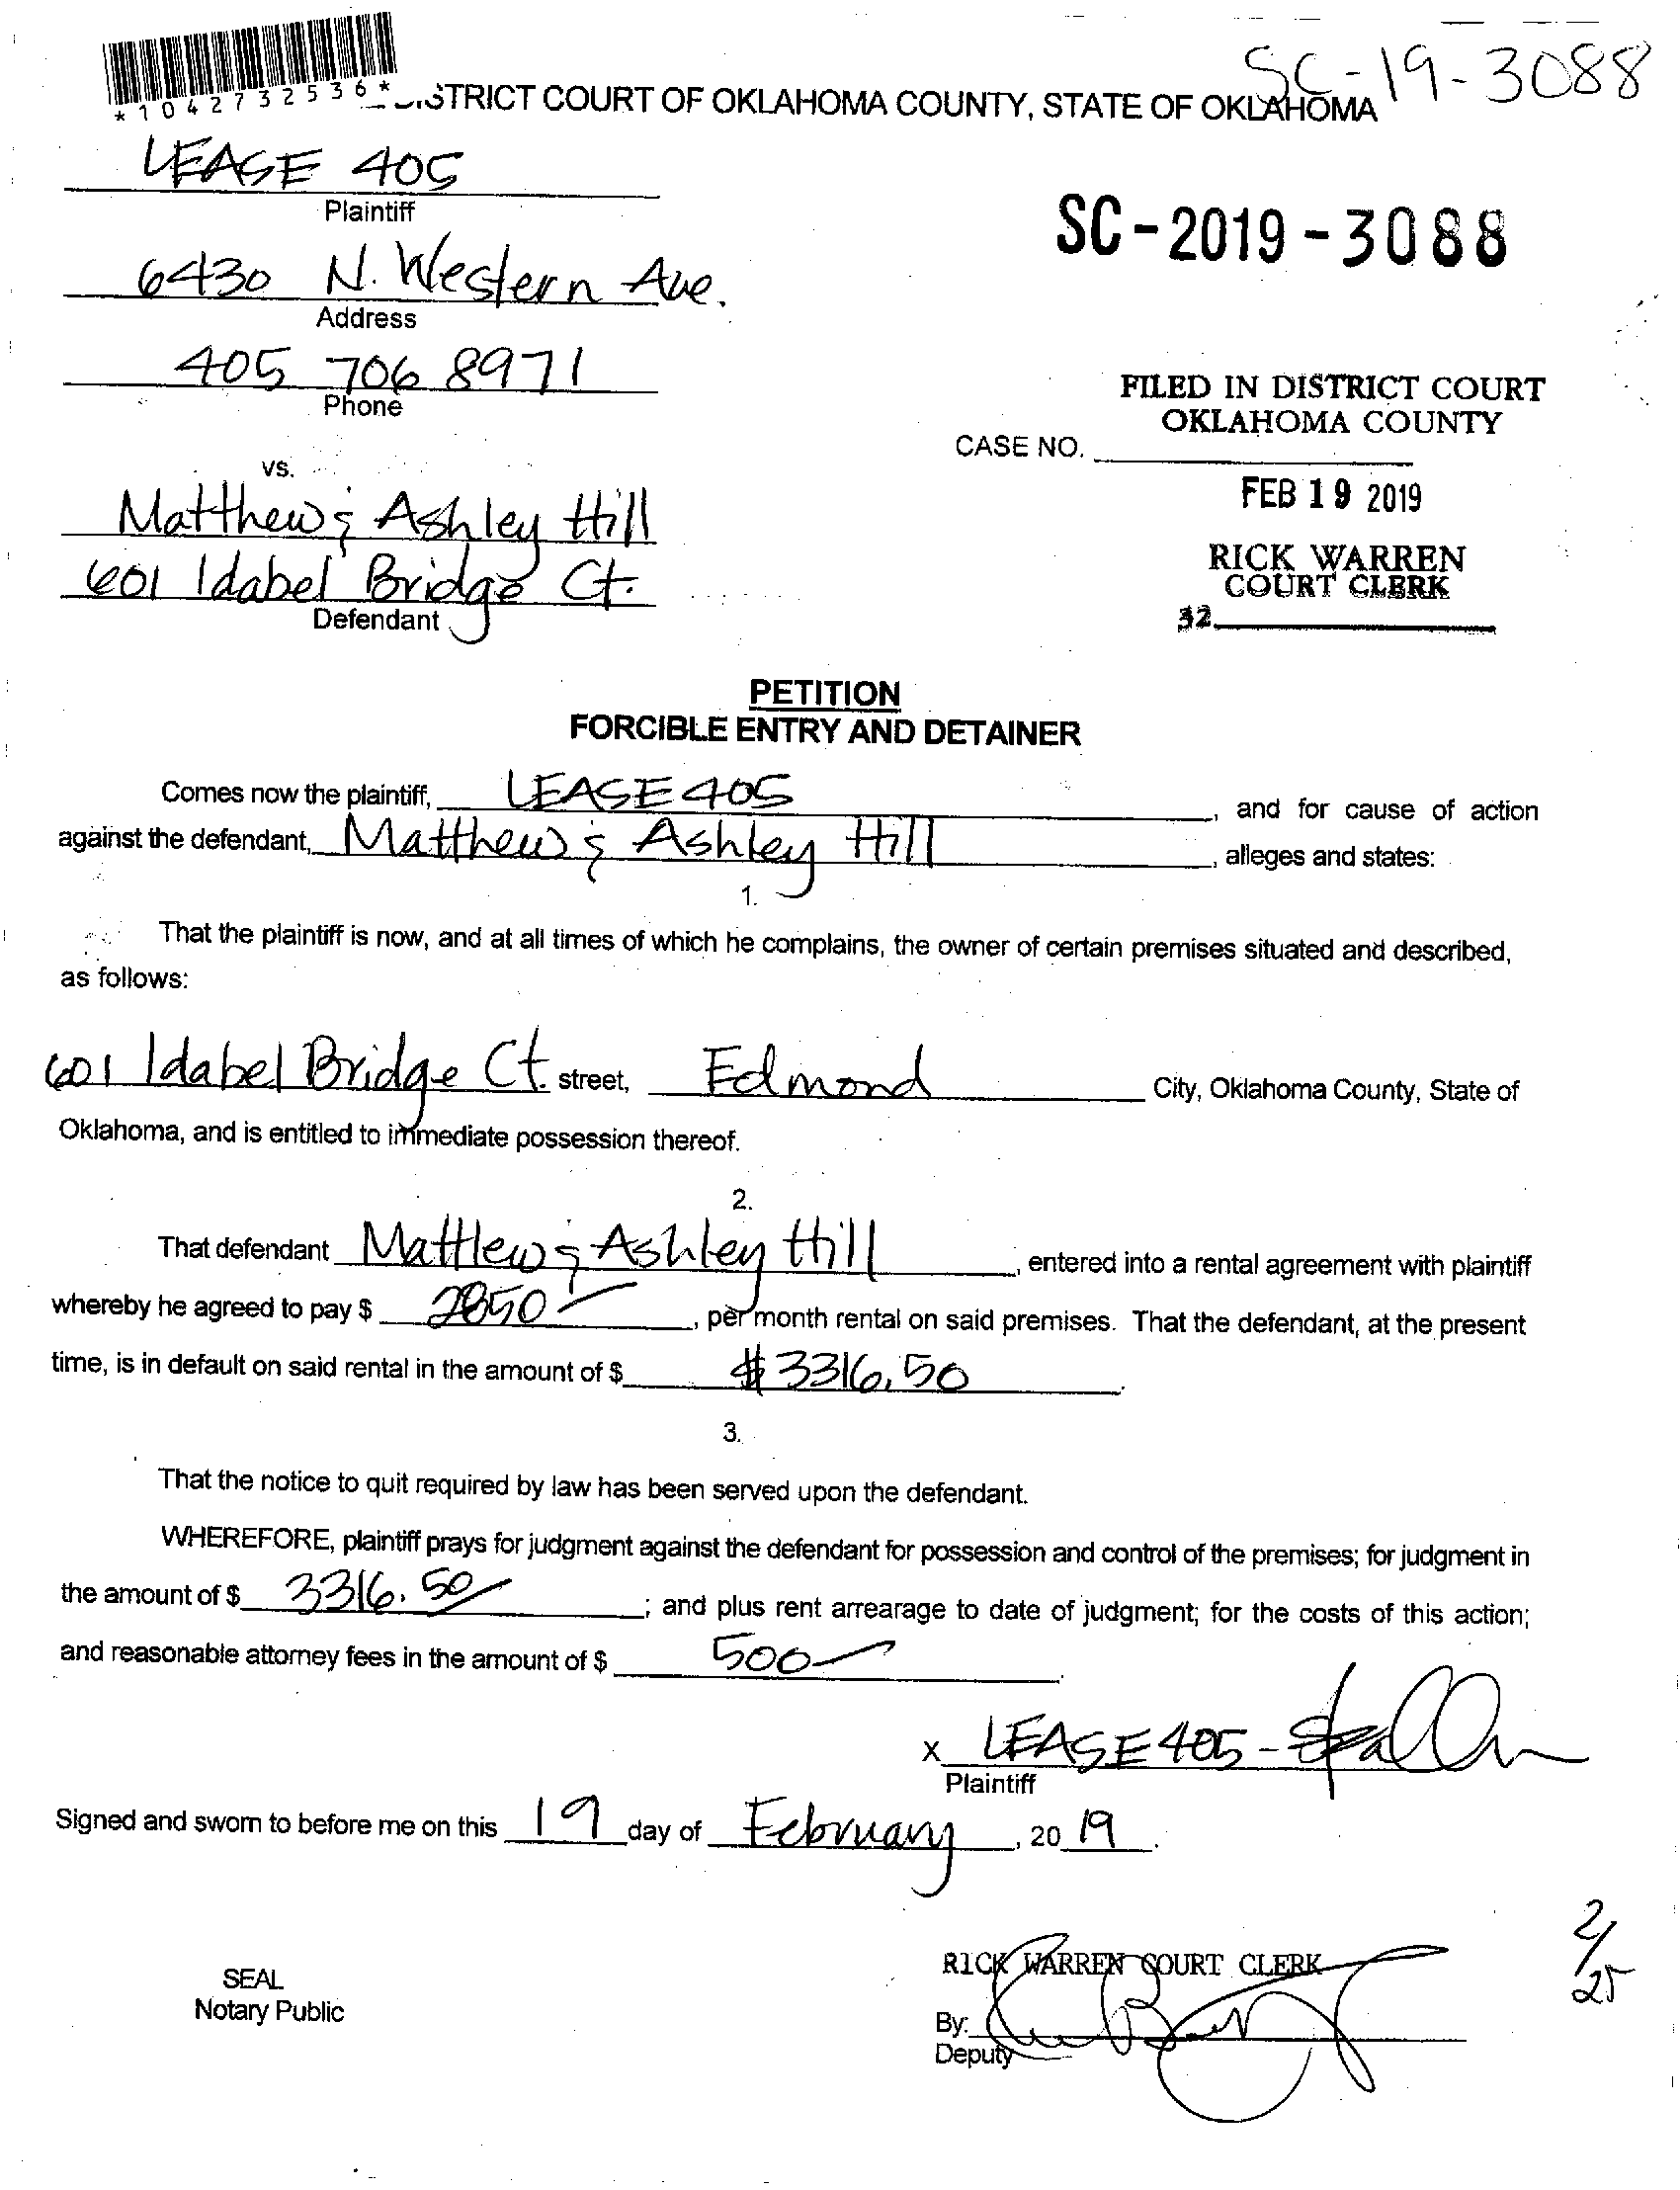 SC-19-3088
*1042732536*
STRICT COURT OF OKLAHOMA COUNTY, STATE OF OKLAHOMA
LEASE 405
Plaintiff
SC-2019-3088
6430 N. Western Ave.
Address
405 706 8971
Phone
FILED IN DISTRICT COURT
OKLAHOMA COUNTY
CASE NO.
vs.
FEB 19 2019
Matthew & Ashley Hill
RICK WARREN
COURT CLERK
601 Idabel Bridge Ct.
Defendant
32
PETITION
FORCIBLE ENTRY AND DETAINER
Comes now the plaintiff, LEASE 405, and for cause of action
against the defendant, Matthew & Ashley Hill, alleges and states:
1.
That the plaintiff is now, and at all times of which he complains, the owner of certain premises situated and described,
as follows:
601 Idabel Bridge Ct. street, Edmond City, Oklahoma County, State of
Oklahoma, and is entitled to immediate possession thereof.
2.
That defendant Matthew & Ashley Hill, entered into a rental agreement with plaintiff
whereby he agreed to pay $ 2850-, per month rental on said premises. That the defendant, at the present
time, is in default on said rental in the amount of $ $3316.50.
3.
That the notice to quit required by law has been served upon the defendant.
WHEREFORE, plaintiff prays for judgment against the defendant for possession and control of the premises; for judgment in
the amount of $ 3316.50; and plus rent arrearage to date of judgment; for the costs of this action;
and reasonable attorney fees in the amount of $ 500-.
x LEASE 405 -
Plaintiff
Signed and sworn to before me on this 19 day of February, 2019.
2/25
RICK WARREN COURT CLERK
SEAL
Notary Public
By:
Deputy